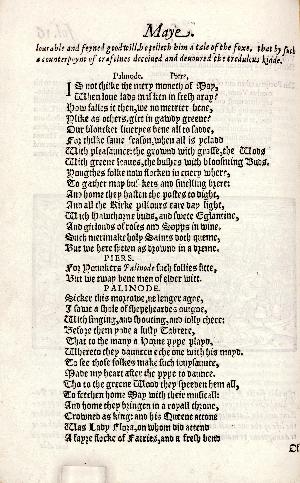 Maye.
lourable and feyned goodwill, he telleth him a tale of the foxe, that by such
a counterpoynt of craftines deceived and devoured the credulous kidde.
Palinode. Piers,
IS not thilke the mery moneth of May,
When love lads masken in fresh aray?
How falles it then, we no merrier bene,
Ylike as others, girt in gawdy greene?
Our bloncket liveryes bene all to sadde,
For thilke same season, when all is ycladd
With pleasaunce: the grownd with grasse, the Wods
With greene leaves, the bushes with bloosming Buds.
Yougthes folke now flocken in every where,
To gather may buskets and smelling brere:
And home they hasten the postes to dight,
And all the Kirke pillours eare day light,
With Hawthorne buds, and swete Eglantine,
And girlonds of roses and Sopps in wine.
Such merimake holy Saints doth queme,
But we here sitten as drownd in a dreme.
PIERS.
For Younkers Palinode such follies fitte,
But we tway bene men of elder witt.
PALINODE.
Sicker this morrowe, ne lenger agoe,
I sawe a shole of shepeheardes outgoe,
With singing, and shouting, and jolly chere:
Before them yode a lusty Tabrere,
That to the many a Horne pype playd,
Whereto they dauncen eche one with his mayd.
To see those folkes make such jouysaunce,
Made my heart after the pype to daunce.
Tho to the greene Wood they speeden hem all,
To fetchen home May with their musicall:
And home they bringen in a royall throne,
Crowned as king: and his Queene attone
Was Lady Flora, on whom did attend
A fayre flocke of Faeries, and a fresh bend
Of